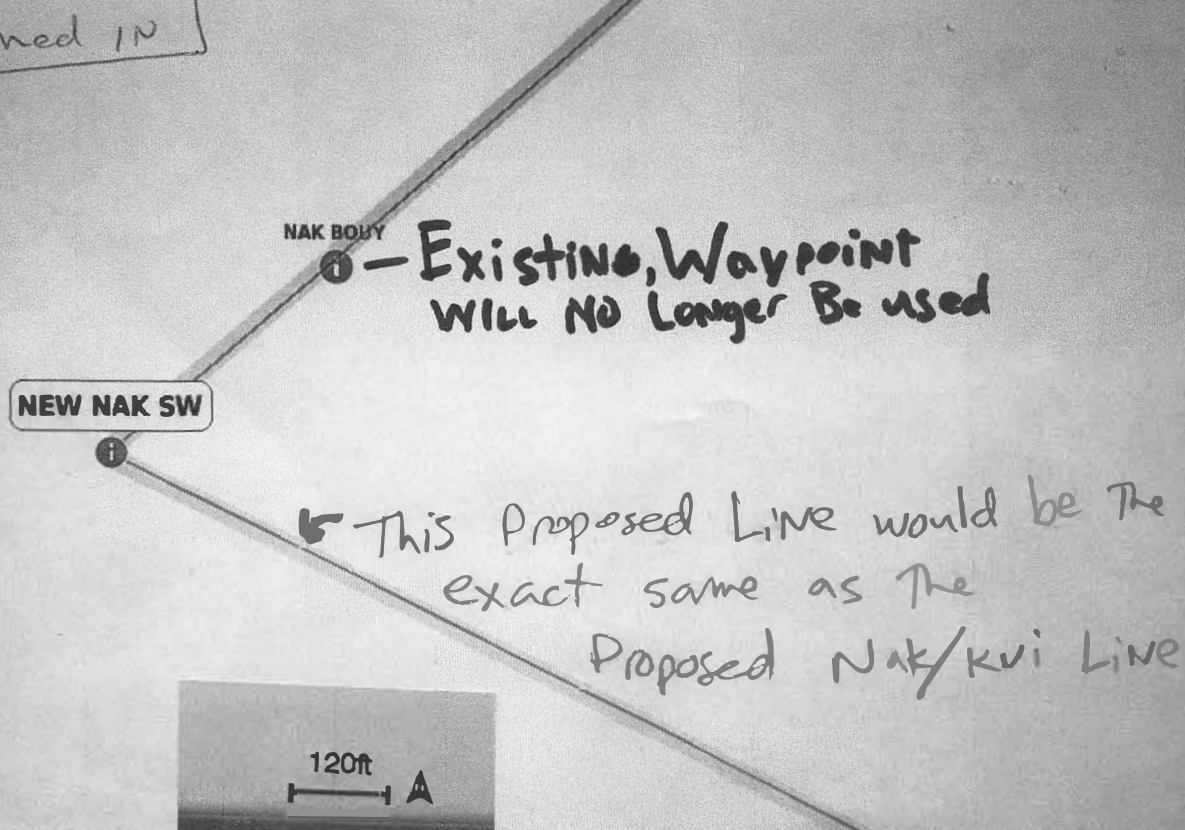 IN
NAK BOUY
– Existing, Waypoint
WILL NO Longer Be used
NEW NAK SW
This Proposed Line would be The
exact same as The
Proposed Nak/kvi Line
120ft